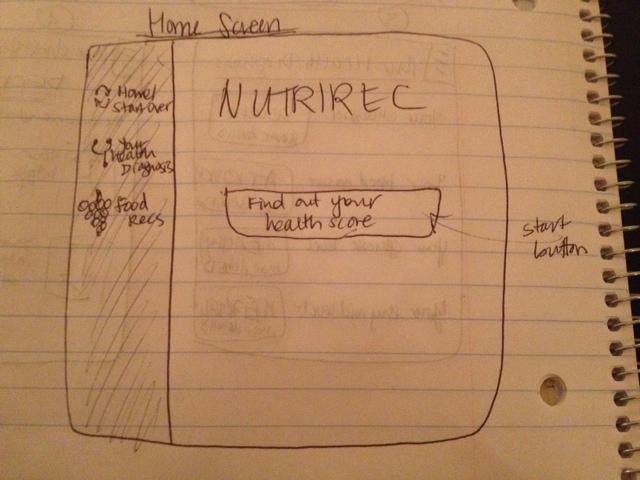 Home Screen
NUTRIREC
Home/
Start Over
Your
Health
Diagnosis
Food
Recs
Find out your
health score
start
button